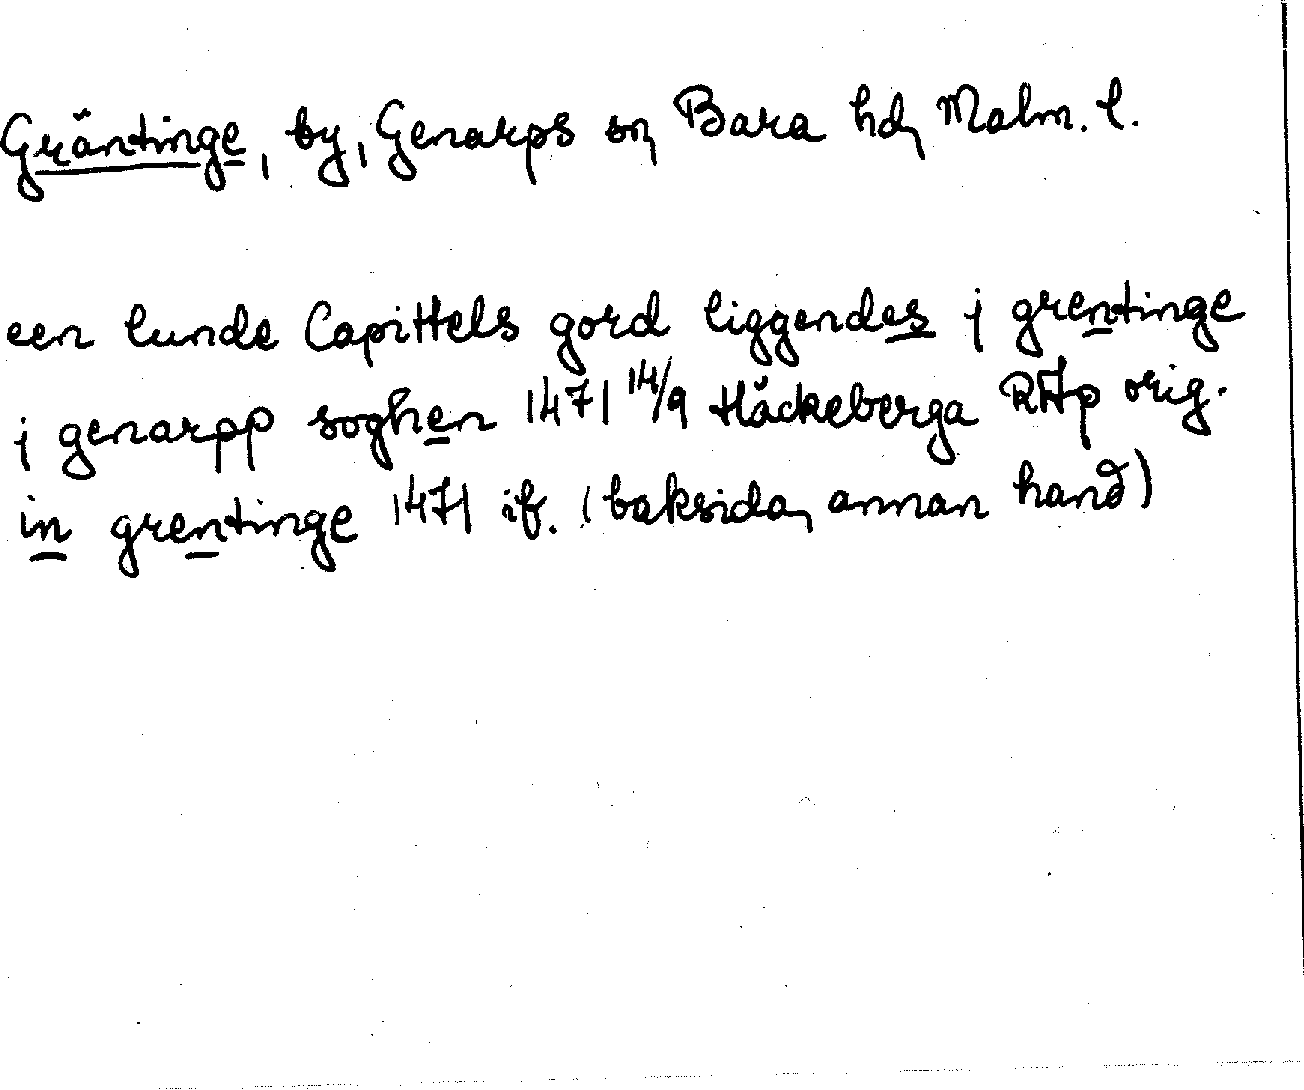 Gräntinge, by, Genarps sn, Bara hd, Malm. l.
een lunde Capittels gord liggendes j grentinge
j genarpp soghen 1471 14/9 Häckeberga RAp orig.
in grentinge 1471 ib. (baksida, annan hand)